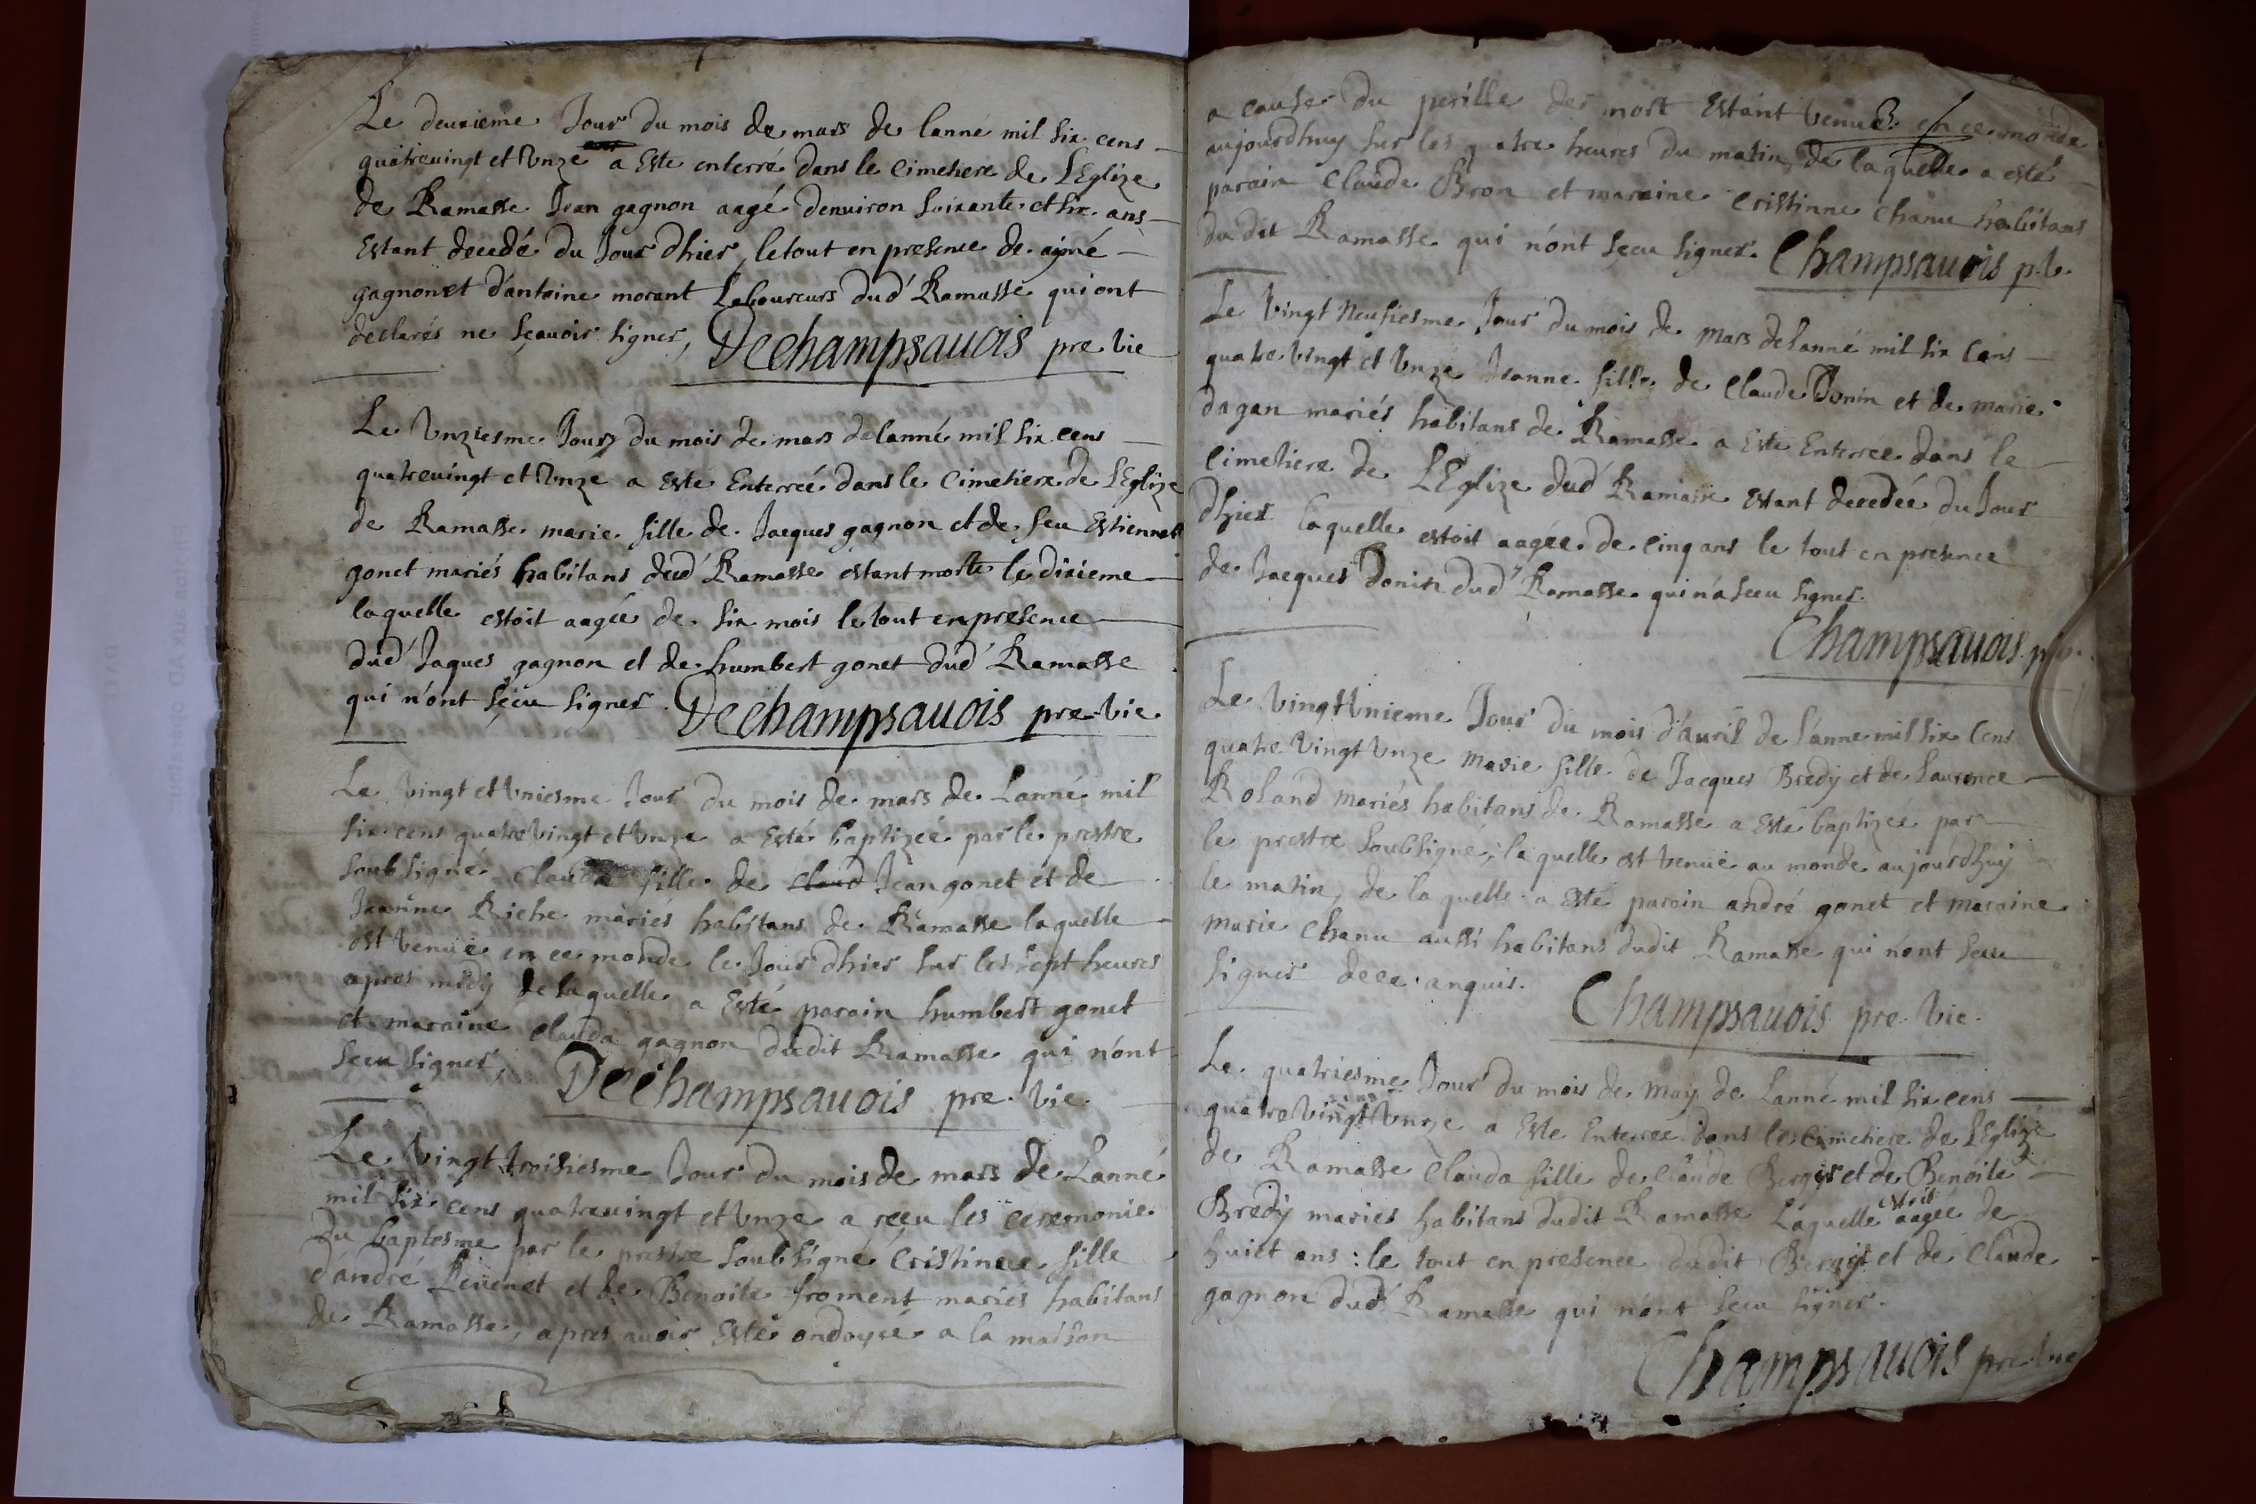 Le deuxieme Jour du mois de mars de lanné mil six cens
quatreuingt et Vnze a Este enterré dans le Cimetiere de LEglize
de Ramasse Jean gagnon aagé denuiron soixante et six ans
Estant decedé du Jour dhier, le tout en presence de aimé
gagnon et d'antoine morant Laboureurs dud' Ramasse qui ont
declarés ne sçauoir signer, Dechampsauois pre vic
Le Vnziesme Jour du mois de mars de lanné mil six cens
quatreuingt et Vnze a Esté Enterreé dans le Cimetiere de LEglize
de Ramasse marie fille de Jacques gagnon et de feu Estiennette
gonet mariés habitans dud' Ramasse estant morte le dixieme
laquelle estoit aageé de six mois le tout en presence
dud' Jaques gagnon et de humbert gonet dud' Ramasse
qui n'ont sçeu signer. Dechampsauois pre vic.
Le Vingt et Vniesme Jour du mois de mars de Lanné mil
six cens quatre Vingt et Vnze a Esté baptizeé par le prestre
soubsigné Clauda fille de claud Jean gonet et de
Jeanne Riche mariés habitans de Ramasse laquelle
est Venuë en ce monde le Jour dhier sur les sept heures
apres midy de laquelle a Esté parain humbert gonet
et maraine Clauda gagnon dudit Ramasse qui n'ont
sceu signer, Dechampsauois pre. vic.
Le Vingt troisiesme Jour du mois de mars de Lanné
mil six cens quatreuingt et Vnze a reçeu les ceremonie
du baptesme par le prestre soubsigné Cristinne fille
d'andré Leuenet et de Benoite froment mariés habitans
de Ramasse, apres auoir Esté ondoyee a la maison
a cause du perille de mort Estant Venuë en ce monde
aujourdhuy sur les quatre heures du matin, de laquelle a esté
parain Claude Bron et maraine Cristinne Chanu habitans
du dit Ramasse qui n'ont sçeu signer. Champsauois p.v.
Le Vingt Neufiesme Jour du mois de Mars de lanné mil six Cens
quatre Vingt et Vnze Jeanne fille de Claude Donin et de marie
dagan mariés habitans de Ramasse a Este Enterrée dans le
Cimetiere de LEglize dud' Ramasse Estant decedéé du Jour
dhier laquelle estoit aageé de cinq ans le tout en presence
de Jacques Donin dud' Ramasse qui n'a sceu signer.
Champsauois. p.v.
Le VingtVnieme Jour du mois d'auril de l'anne mil six Cens
quatre Vingt Vnze Marie fille de Jacques Bredy et de Laurence
Roland mariés habitans de Ramasse a Esté baptizee par
le prestre soubsigné, laquelle est venuë au monde aujourdhuy
le matin, de laquelle a Esté parain andré gonet et maraine
marie Chanu aussi habitans dudit Ramasse qui n'ont sceu
signer de ce anquis. Champsauois pre. vic.
Le quatriesme Jour du mois de May de Lanné mil six cens
quatre Vingt Vnze a Este Enterree dans le Cimetiere de LEglize
de Ramasse Clauda fille de Claude Berger et de Benoite
Bredy mariés habitans dudit Ramasse Laquelle estoit aageé de
huict ans : le tout en presence dudit Berger et de Claude
gagnon dud' Ramasse qui n'ont sceu signer.
Champsauois pre vic